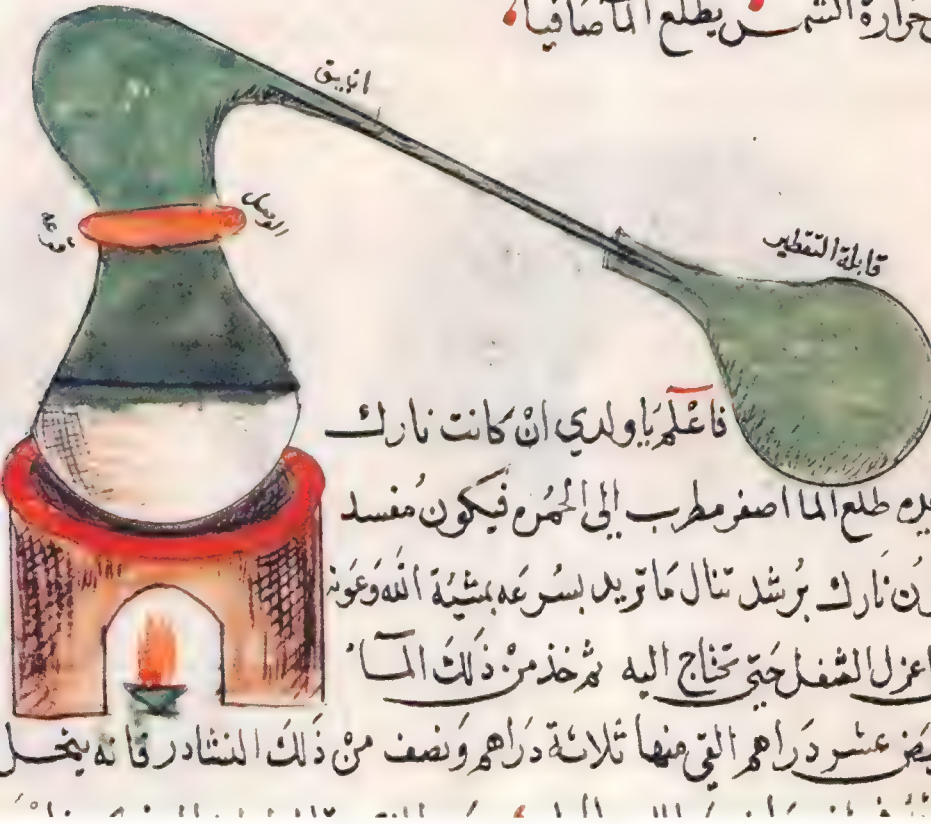 حرارة الشمس يطلع الماء صافيا
انبيق
الوصل
قابلة التقطير
فاعْلَم يَا ولدي انْ كانت نارك
طلع الما اصفر مطرب إلى الحمره فيكون مُفسد
نَارك برُشد تنال مَا تريد بسُرعَه بمشيّة الله وَعَونه
اعزل الثفل حَتى تحتاج اليه ثم خذ منْ ذَلكَ المآء
عشر دَراهم القي منها ثلاثة دَراهم وَنصف منْ ذَلكَ النشادر فانه ينحل